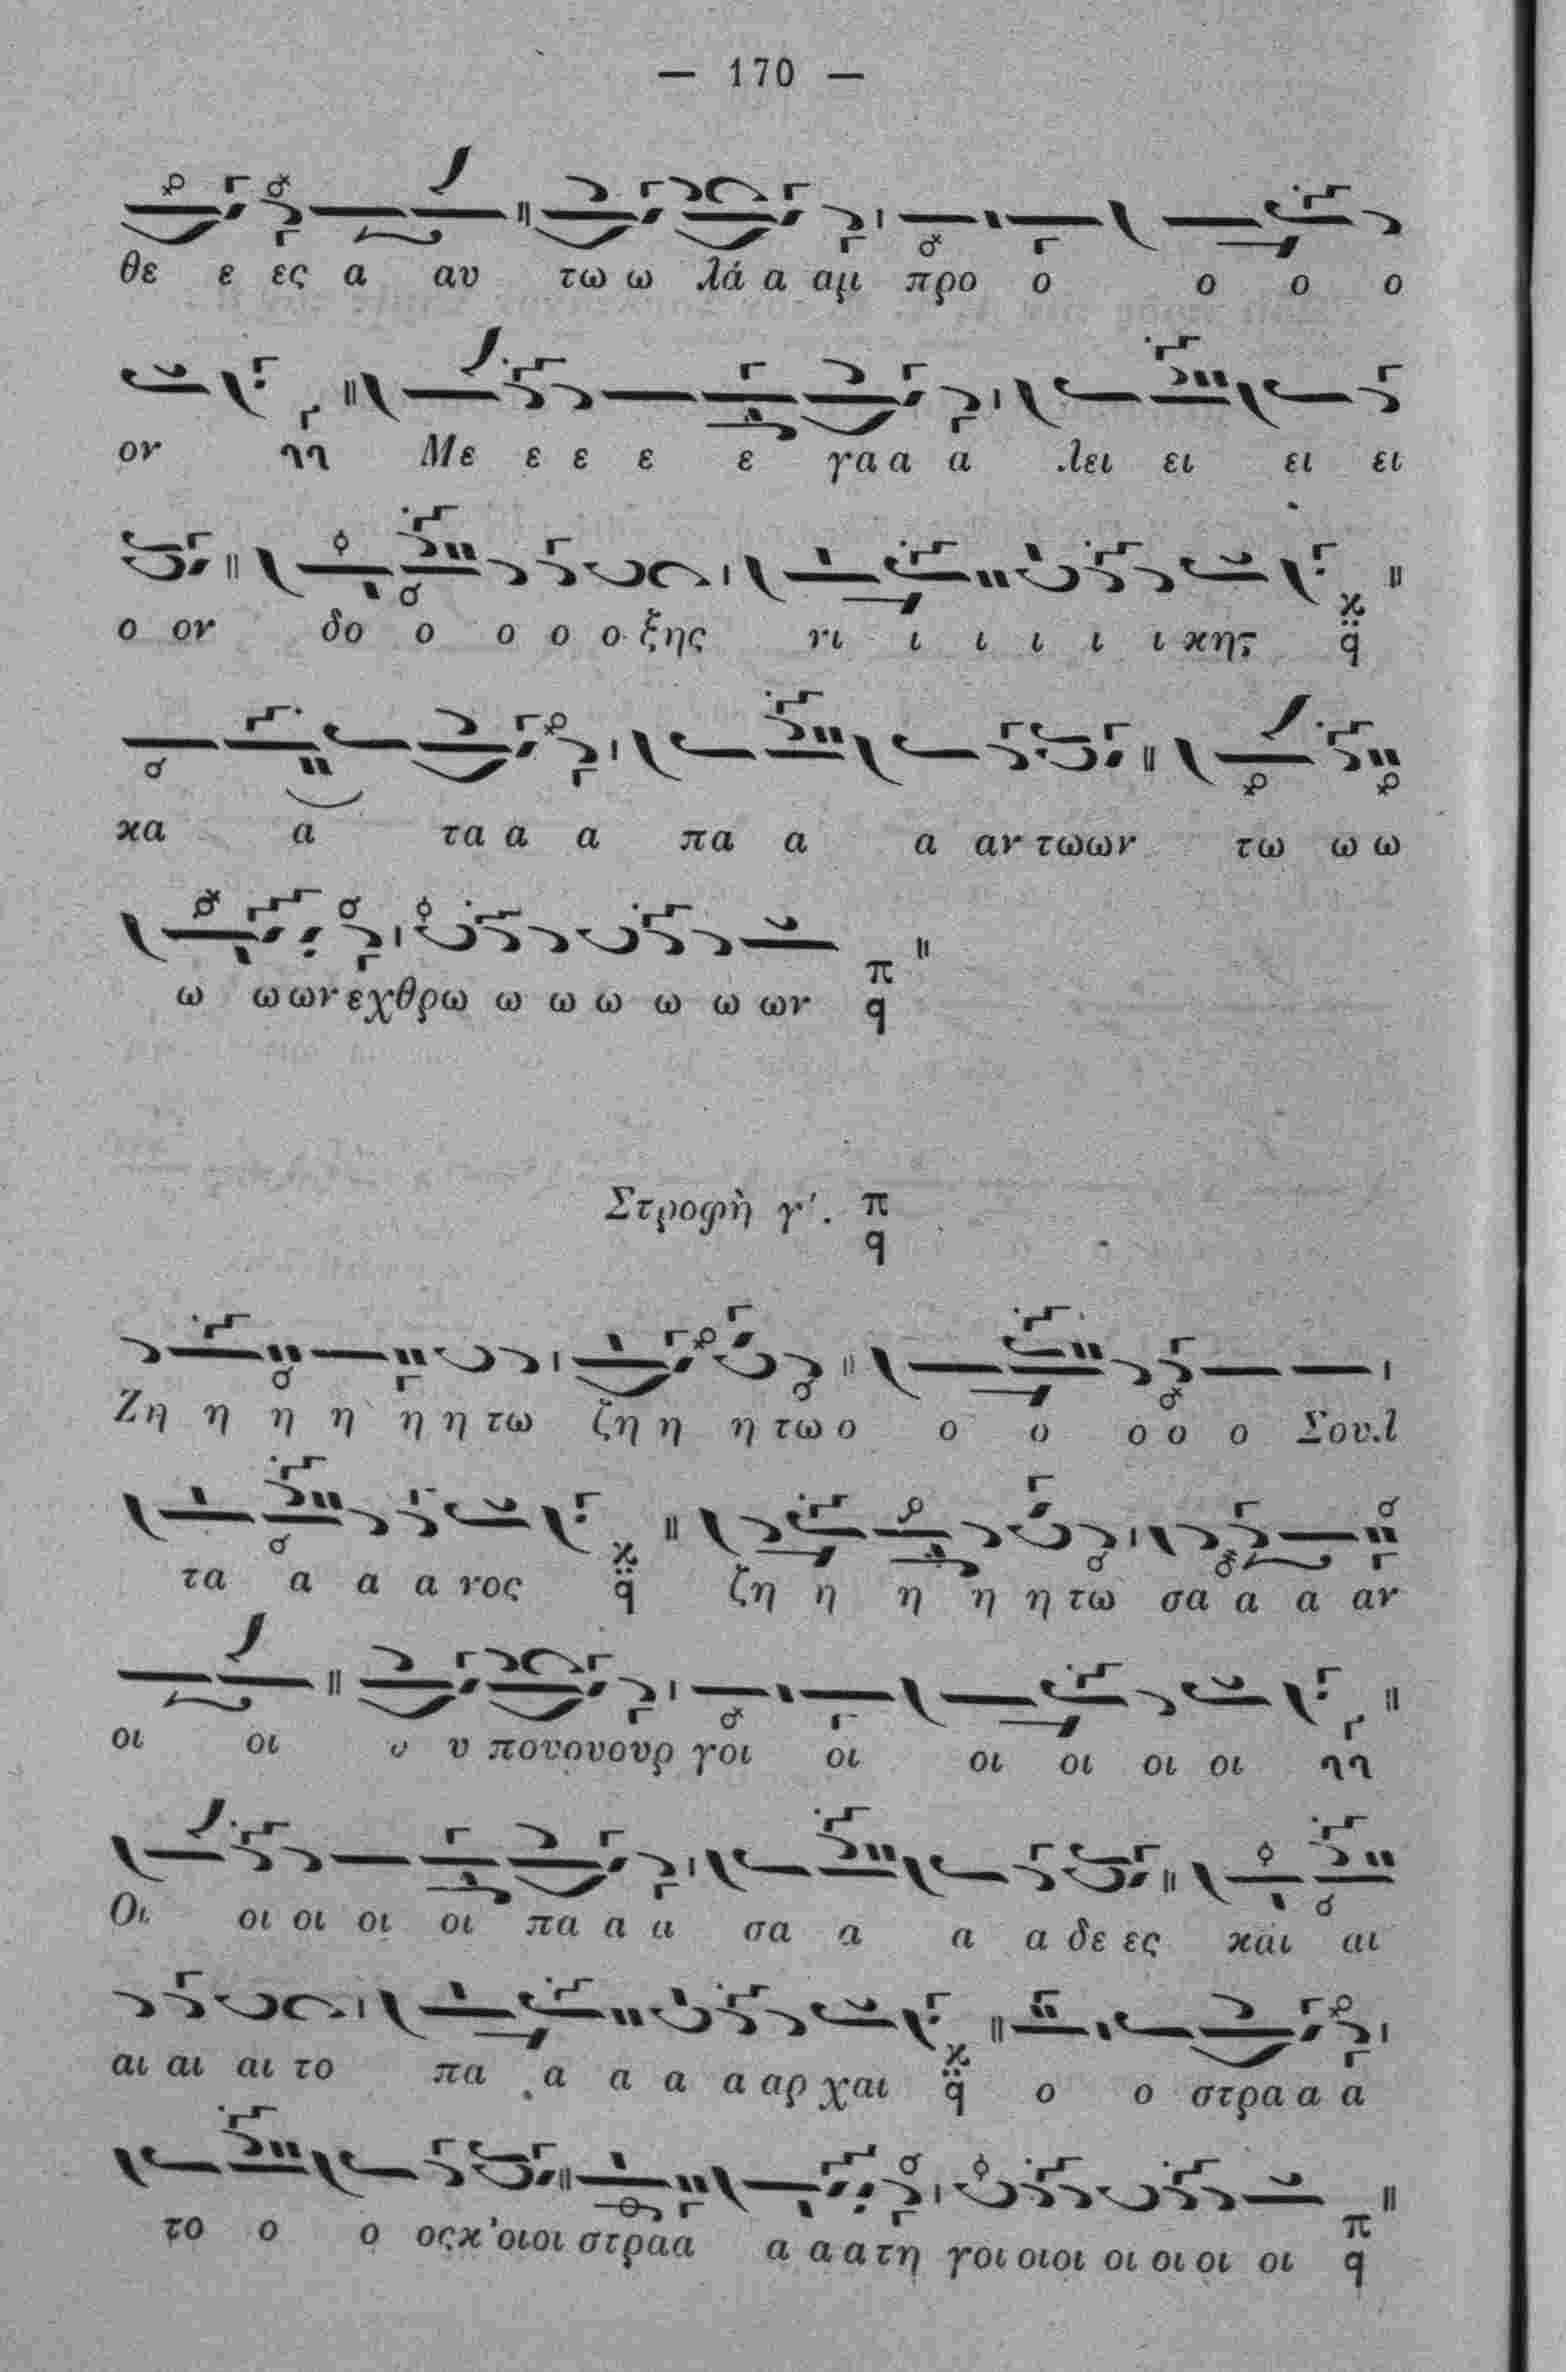 — 170 —
θε ε ες α αυ τω ω λά α αμ προ ο ο ο ο
ον Με ε ε ε ε γα α α λει ει ει ει
ο ον δο ο ο ο ο ξης νι ι ι ι ι ι κης
κα α τα α α πα α α αν τωων τω ω ω
ω ω ων εχθρω ω ω ω ω ω ων π q
Στροφὴ γ'. π q
Ζη η η η η η τω ζη η η τω ο ο ο ο ο ο Σουλ
τα α α α νος ζη η η η η τω σα α α αν
οι οι υ υ πουουουρ γοι οι οι οι οι οι
Οι οι οι οι οι πα α α σα α α α δε ες και αι
αι αι αι το πα α α α α αρ χαι ο ο στρα α α
το ο ο οςκ'οιοι στραα α α α τη γοι οιοι οι οι οι οι π q